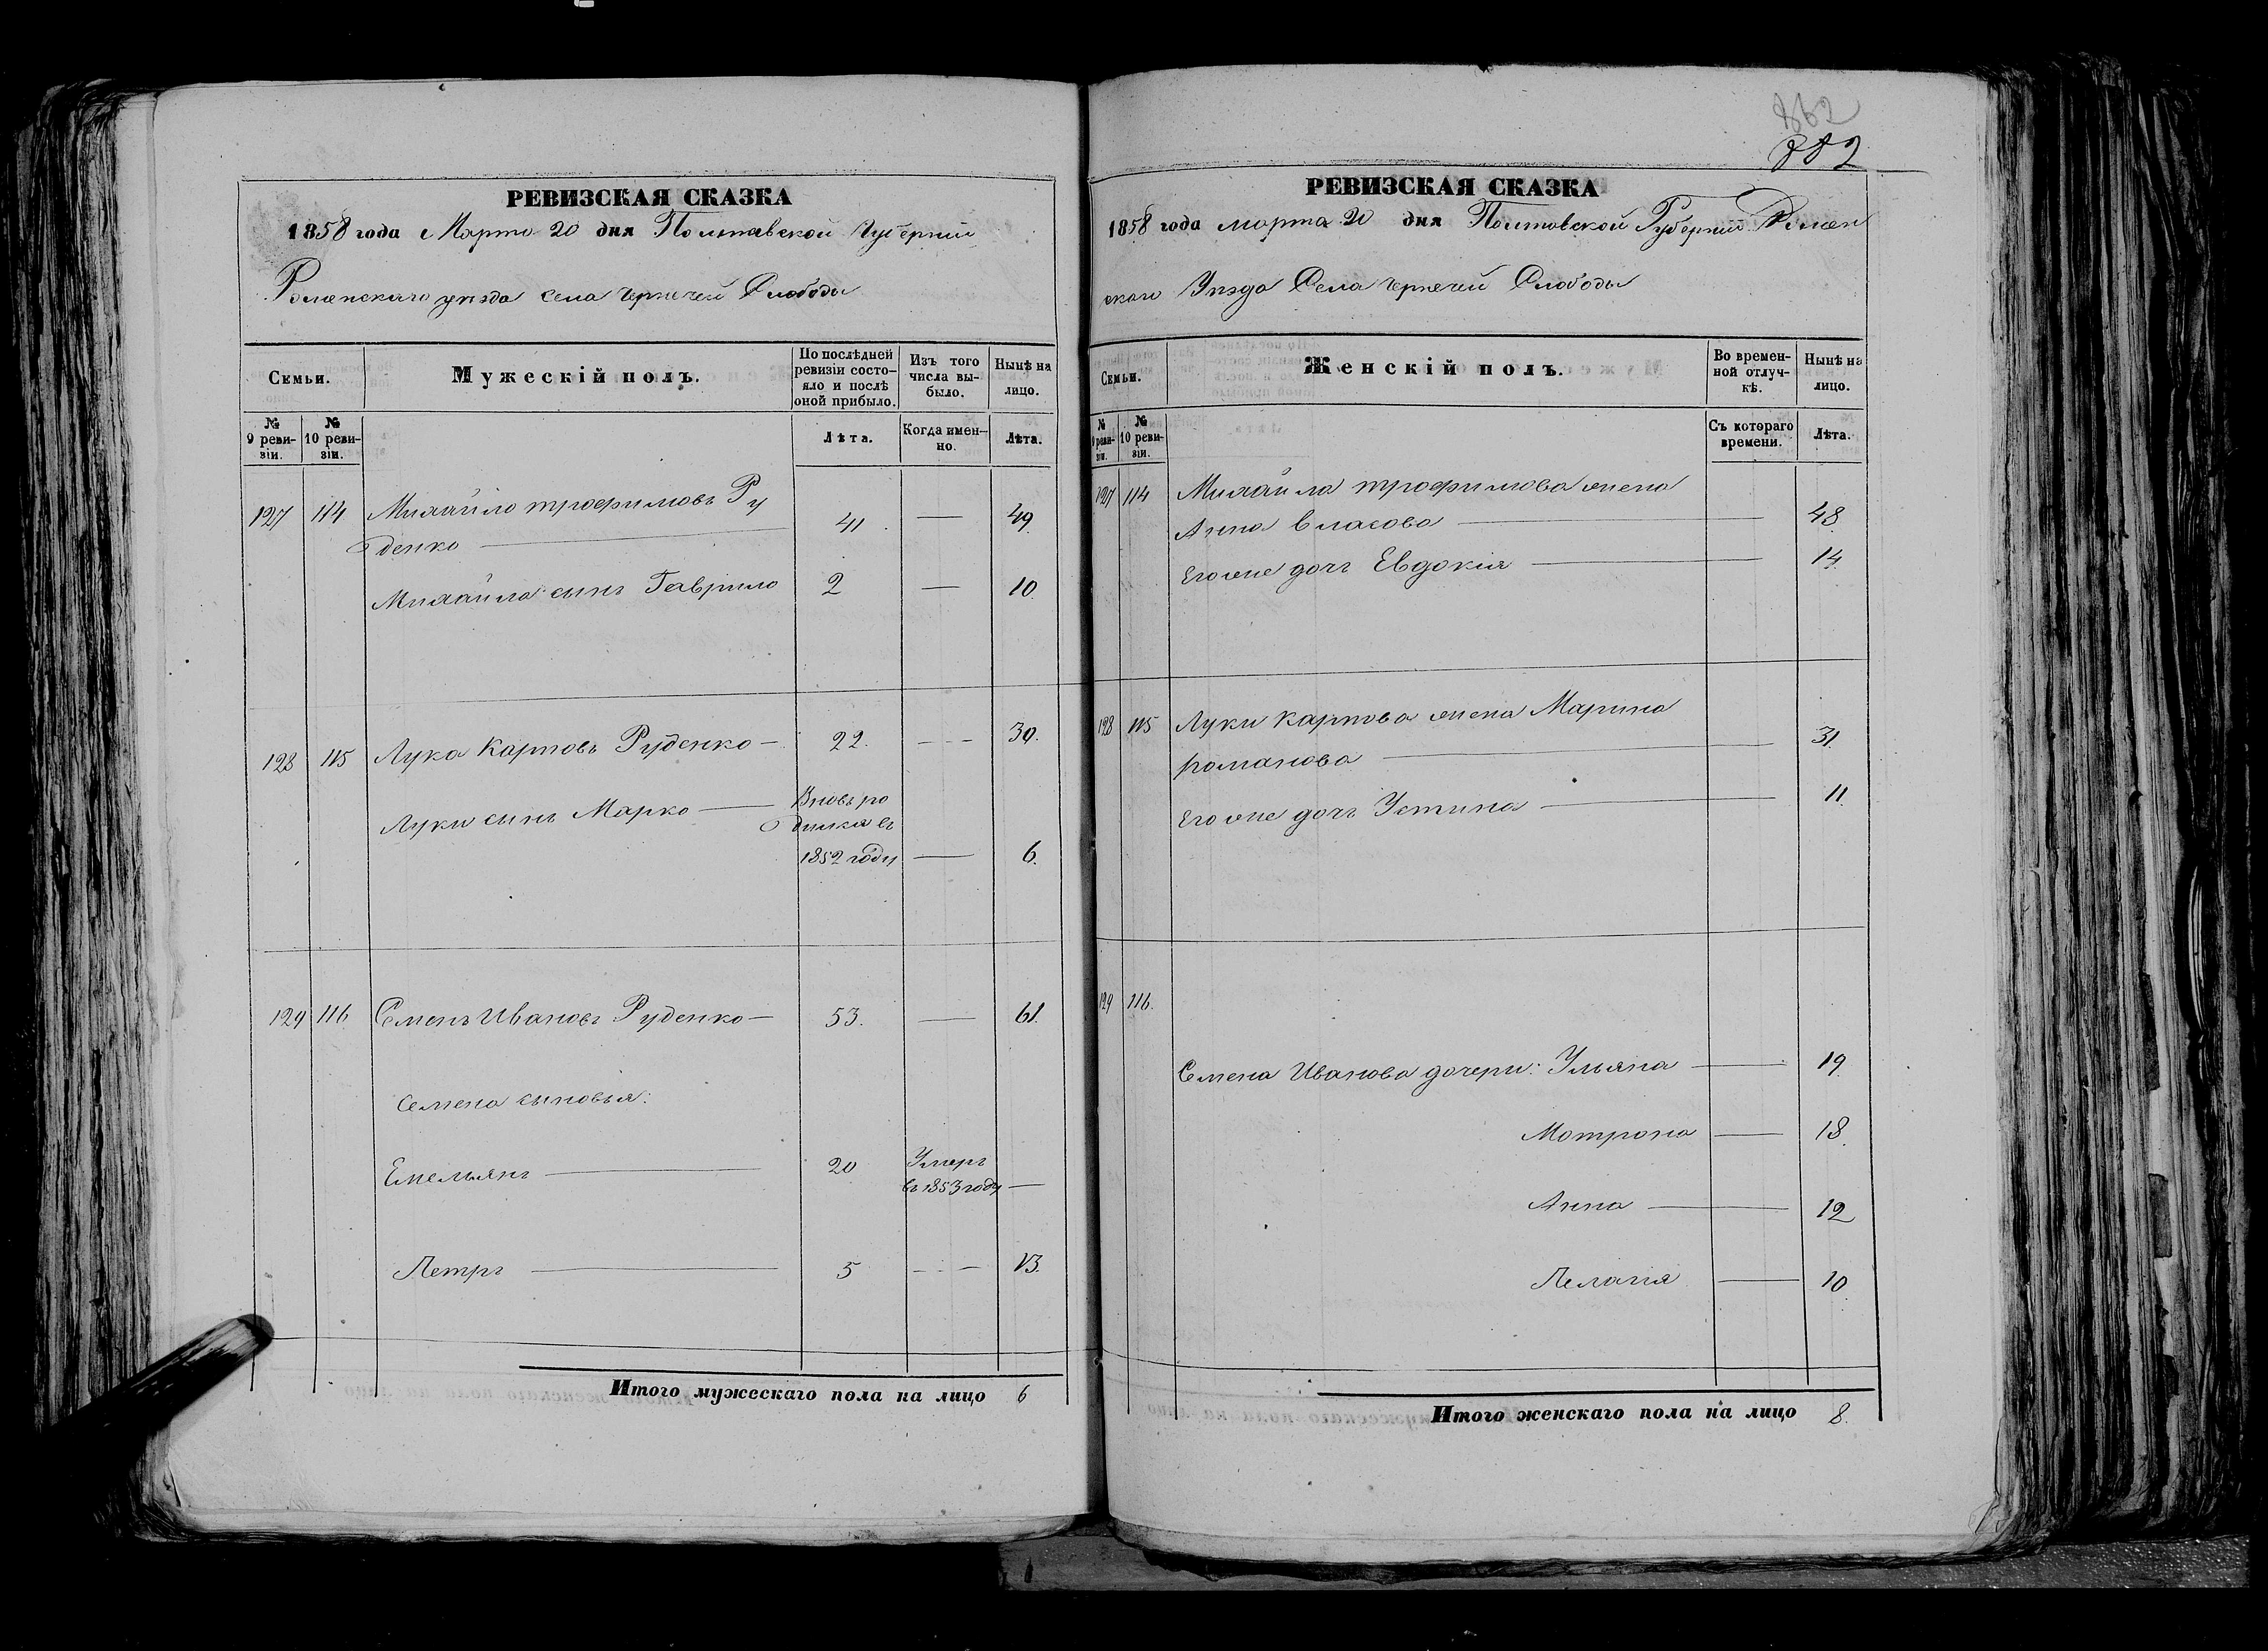 РЕВИЗСКАЯ СКАЗКА
1858 года Марта 20 дня Полтавской Губерніи
Роменскаго уезда села Чернечей Слободы
Семьи.
Мужескій полъ.
По послѣдней ревизіи состо-
яло и послѣ
оной прибыло.
Изъ того
числа вы-
было.
Нынѣ на
лицо.
№
9 реви-
зіи.
№
10 реви-
зіи.
Лѣта.
Когда имен-
но.
Лѣта.
127 114 Михайло трофимовъ Ру
денко 41 — 49.
Михайла сынъ Гаврило 2 — 10.
128 115 Лука Карповъ Руденко — 22. — 30.
Луки сынъ Марко — Вновь ро
дился въ
1852 году — 6.
129 116 Семенъ Ивановъ Руденко — 53. — 61.
Семена сыновья:
Емельянъ — 20 Умеръ
въ 1853 году —
Петръ — 5 — 13.
Итого мужескаго пола на лицо 6
862
РЕВИЗСКАЯ СКАЗКА
1858 года марта 20 дня Полтавской Губерніи Ромен
скаго Уезда Села Чернечей Слободы
Семьи.
Женскій полъ.
Во времен-
ной отлуч-
кѣ.
Нынѣ на
лицо.
№
9 реви-
зіи.
№
10 реви-
зіи.
Съ котораго
времени.
Лѣта.
127 114 Михайла трофимова жена
Анна власова — 48.
Его же дочь Евдокія — 14.
128 115 Луки Карпова жена Марина
романова — 31.
Его же дочь Устина — 11.
129 116.
Семена Иванова дочери: Ульяна — 19
Мотрона — 18.
Анна — 12
Пелагія — 10
Итого женскаго пола на лицо 8.